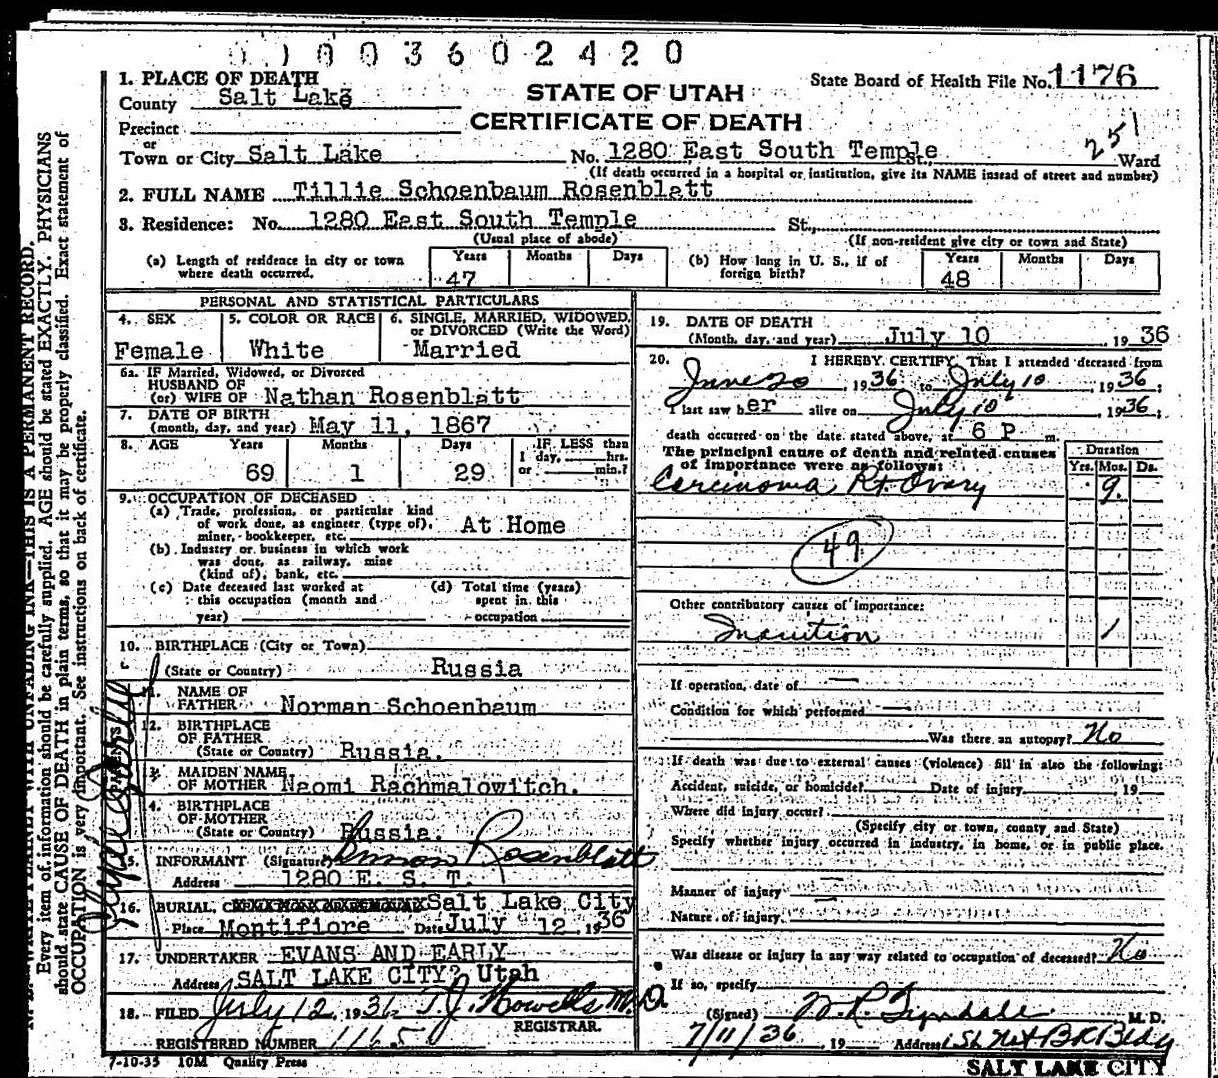 0 1 0 0 3 6 0 2 4 2 0
1. PLACE OF DEATH
County Salt Lake
STATE OF UTAH
State Board of Health File No. 1176
CERTIFICATE OF DEATH
Precinct
or
Town or City Salt Lake No. 1280 East South Temple St., 251 Ward
(If death occurred in a hospital or institution, give its NAME insead of street and number)
2. FULL NAME Tillie Schoenbaum Rosenblatt
3. Residence: No. 1280 East South Temple St.,
(Usual place of abode) (If non-resident give city or town and State)
(a) Length of residence in city or town where death occurred. Years 47 Months Days
(b) How long in U. S., if of foreign birth? Years 48 Months Days
PERSONAL AND STATISTICAL PARTICULARS
4. SEX Female
5. COLOR OR RACE White
6. SINGLE, MARRIED, WIDOWED, or DIVORCED (Write the Word) Married
6a. IF Married, Widowed, or Divorced
HUSBAND OF
(or) WIFE OF Nathan Rosenblatt
7. DATE OF BIRTH
(month, day, and year) May 11, 1867
8. AGE Years 69 Months 1 Days 29 IF LESS than 1 day, hrs. or min.?
9. OCCUPATION OF DECEASED
(a) Trade, profession, or particular kind
of work done, as engineer (type of),
miner, bookkeeper, etc. At Home
(b) Industry or business in which work
was done, as railway, mine
(kind of), bank, etc.
(c) Date deceased last worked at this occupation (month and year)
(d) Total time (years) spent in this occupation
10. BIRTHPLACE (City or Town)
(State or Country) Russia
11. NAME OF
FATHER Norman Schoenbaum
12. BIRTHPLACE
OF FATHER
(State or Country) Russia.
13. MAIDEN NAME
OF MOTHER Naomi Rachmalowitch.
14. BIRTHPLACE
OF MOTHER
(State or Country) Russia.
15. INFORMANT (Signature) Rosenblatt
Address 1280 E. S. T.
16. BURIAL, Salt Lake City
Place Montifiore Date July 12, 1936
17. UNDERTAKER EVANS AND EARLY
Address SALT LAKE CITY? Utah
18. FILED July 12, 1936 T.J. Howells M.D.
REGISTRAR.
REGISTERED NUMBER 1165
7-10-35 10M Quality Press
19. DATE OF DEATH
(Month, day, and year) July 10 1936
20. I HEREBY CERTIFY, That I attended deceased from
June 20 1936, to July 10, 1936;
I last saw her alive on July 10 1936;
death occurred on the date stated above, at 6 P m.
The principal cause of death and related causes
of importance were as follows:
Duration
Yrs. Mos. Ds.
Carcinoma Rt. Ovary 9
49
Other contributory causes of importance:
Inanition 1
If operation, date of
Condition for which performed
Was there an autopsy? No
If death was due to external causes (violence) fill in also the following:
Accident, suicide, or homicide? Date of injury 19
Where did injury occur?
(Specify city or town, county and State)
Specify whether injury occurred in industry, in home, or in public place.
Manner of injury
Nature of injury
Was disease or injury in any way related to occupation of deceased? No
If so, specify
(Signed) W. R. Tyndale M. D.
7/11/36 19 Address
SALT LAKE CITY
WITH UNFADING INK—THIS IS A PERMANENT RECORD.
Every item of information should be carefully supplied. AGE should be stated EXACTLY. PHYSICIANS
should state CAUSE OF DEATH in plain terms, so that it may be properly classified. Exact statement of
OCCUPATION is very important. See instructions on back of certificate.